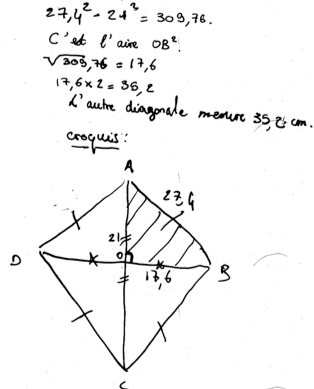 27,4² - 21² = 309,76.
C'est l'aire OB².
√309,76 = 17,6
17,6 x 2 = 35,2
L'autre diagonale mesure 35,2 cm.
croquis :
A
27,4
21
D
O
B
17,6
C